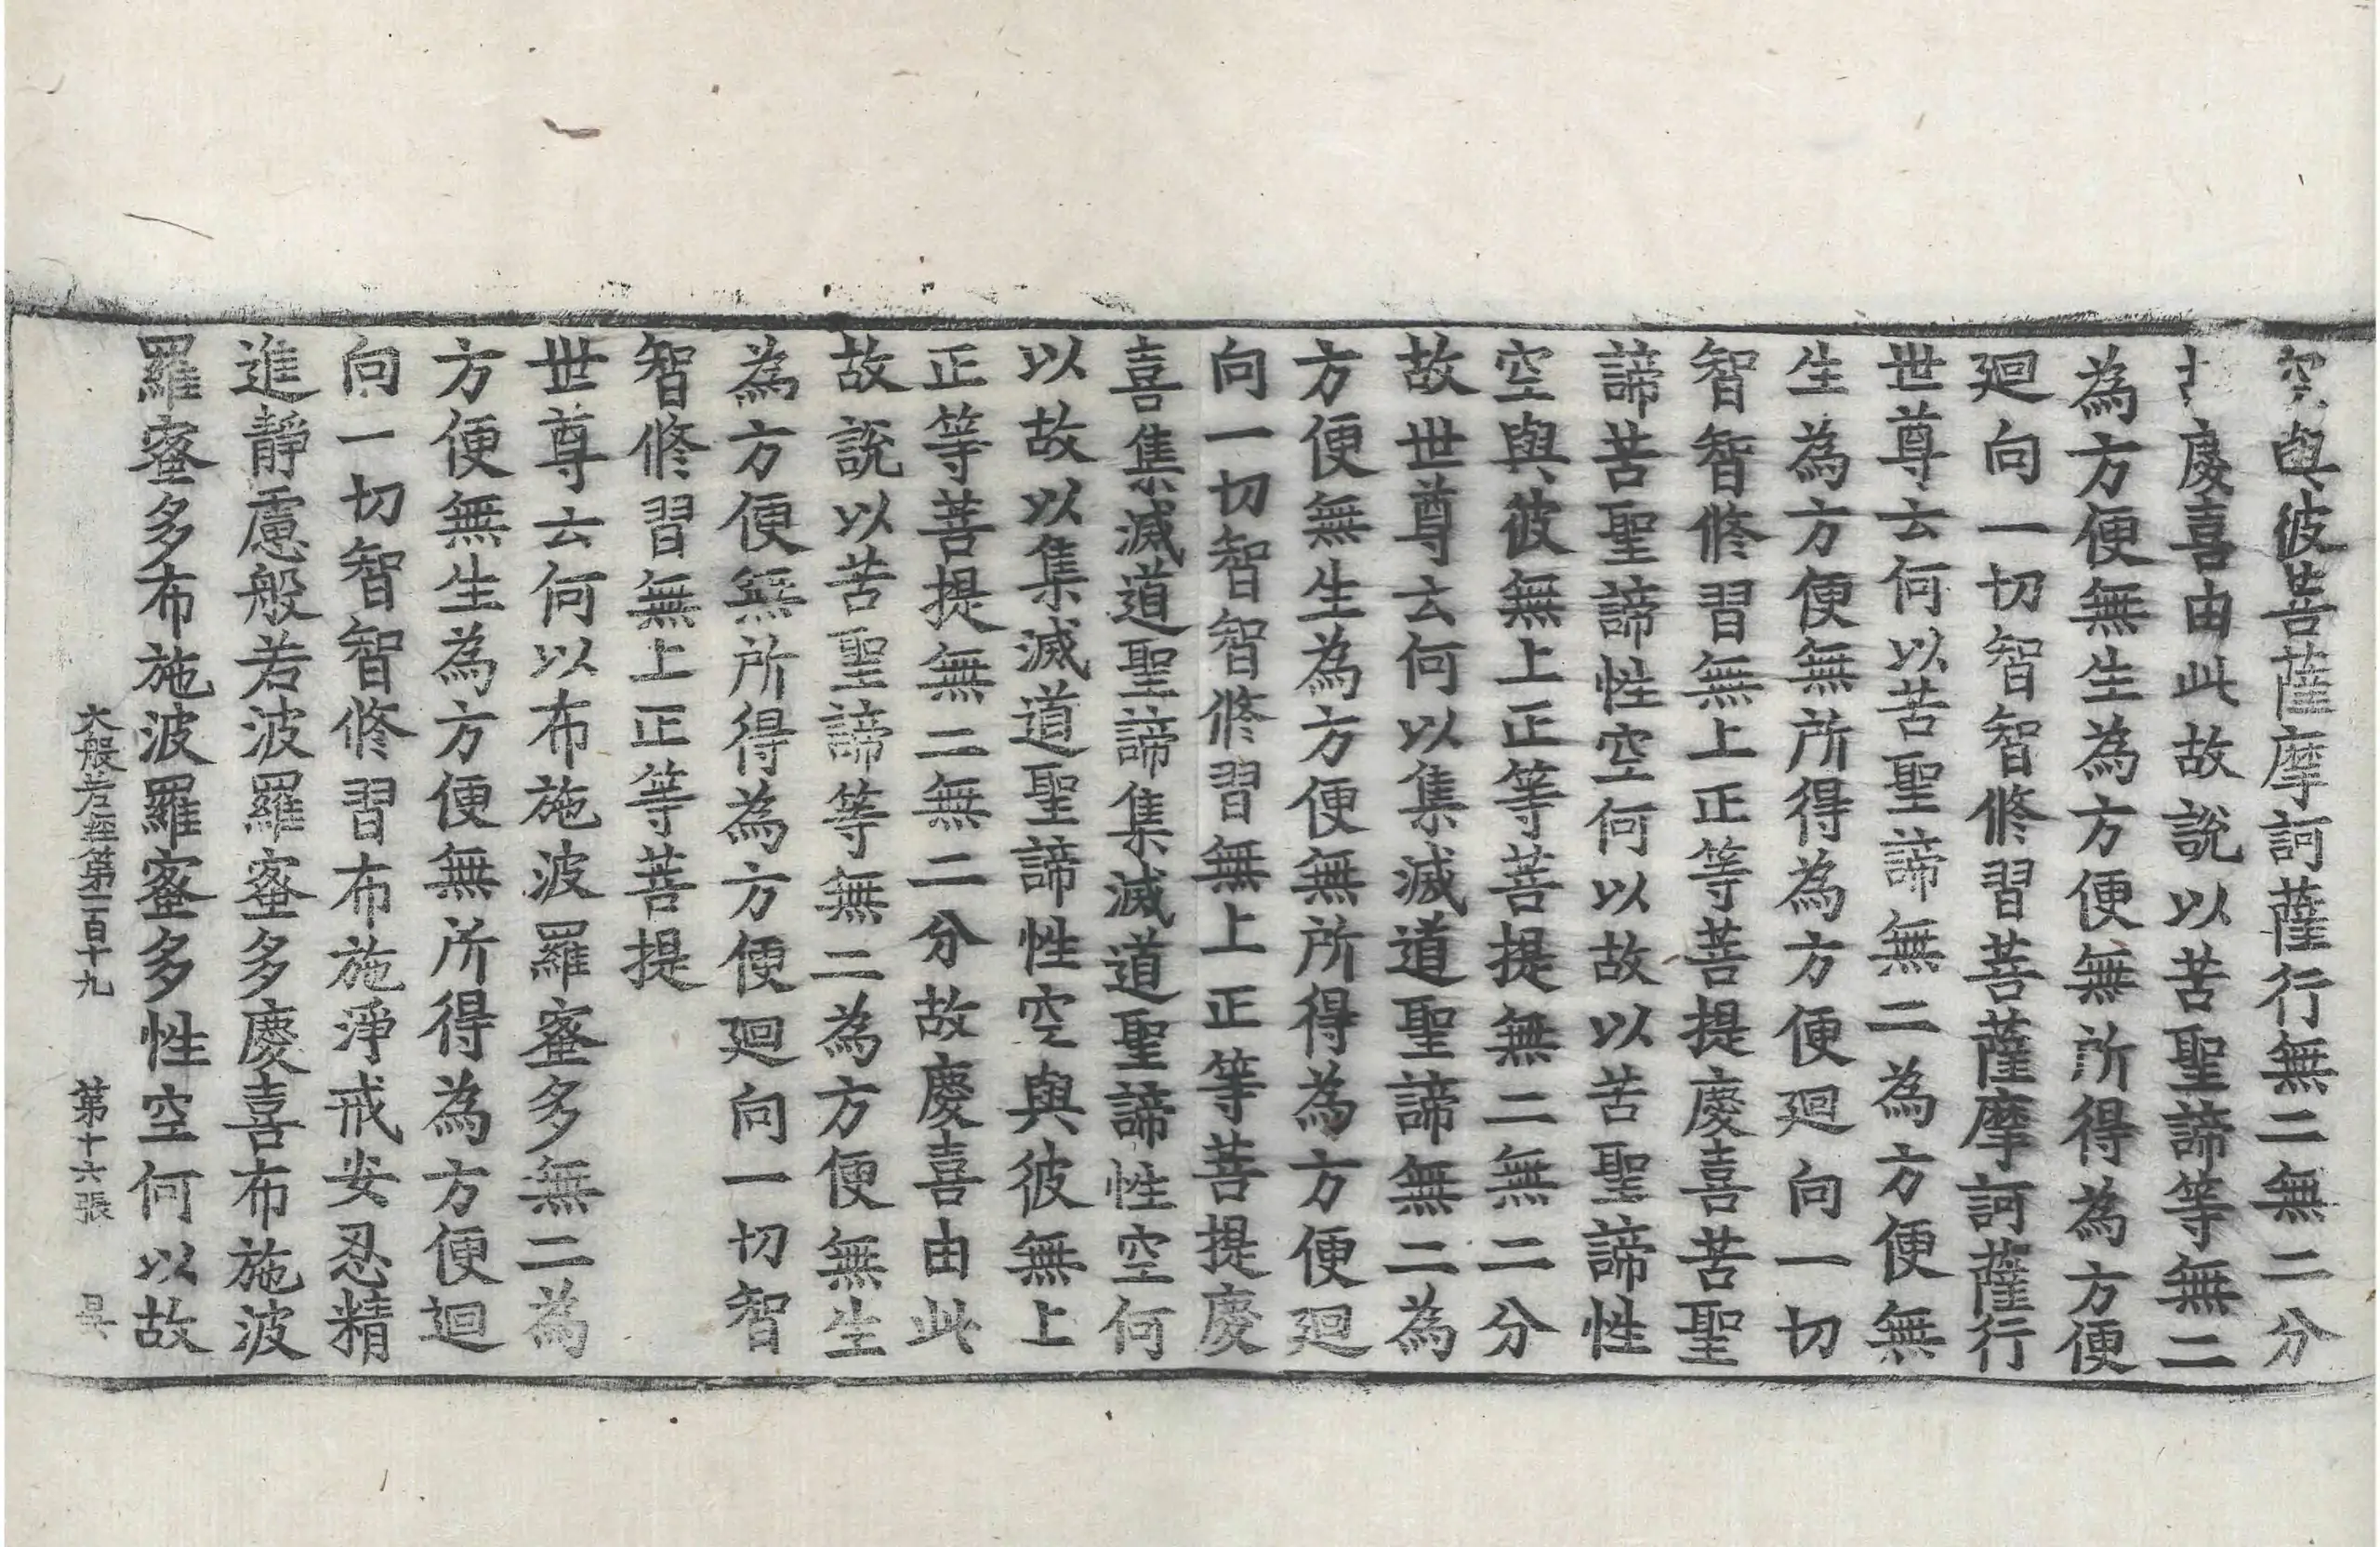 空與彼菩薩摩訶薩行無二無二分
慶喜由此故說以苦聖諦等無二
為方便無生為方便無所得為方便
廻向一切智智修習菩薩摩訶薩行
世尊云何以苦聖諦無二為方便無
生為方便無所得為方便廻向一切
智智修習無上正等菩提慶喜苦聖
諦苦聖諦性空何以故以苦聖諦性
空與彼無上正等菩提無二無二分
故世尊云何以集滅道聖諦無二為
方便無生為方便無所得為方便廻
向一切智智修習無上正等菩提慶
喜集滅道聖諦集滅道聖諦性空何
以故以集滅道聖諦性空與彼無上
正等菩提無二無二分故慶喜由此
故說以苦聖諦等無二為方便無生
為方便無所得為方便廻向一切智
智修習無上正等菩提
世尊云何以布施波羅蜜多無二為
方便無生為方便無所得為方便廻
向一切智智修習布施淨戒安忍精
進靜慮般若波羅蜜多慶喜布施波
羅蜜多布施波羅蜜多性空何以故
大般若經第一百十九 第十六張 昃